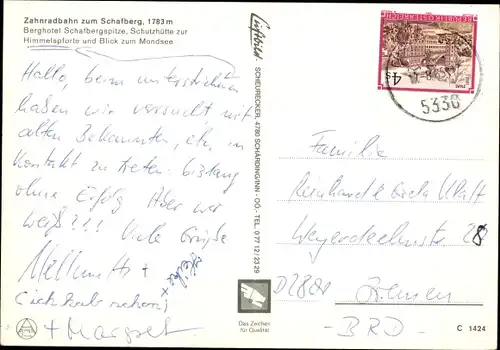 Zahnradbahn zum Schafberg, 1783 m
Berghotel Schafbergspitze, Schutzhütte zur
Himmelspforte und Blick zum Mondsee
Hallo, beim unterstrichenen
haben wir versucht mit
alten Bekannten, etc. in
Kontakt zu treten: bislang
ohne Erfolg Aber wer
weiß??! Viele Grüße
+ Margret
Luftbild
SCHEURECKER, 4780 SCHÄRDING/INN - OÖ - TEL. 0 77 12 / 23 29
Das Zeichen
für Qualität
REPUBLIK ÖSTERREICH
4 S
5330
Familie
Reinhard &
28
D28
Bremen
- BRD -
C 1424